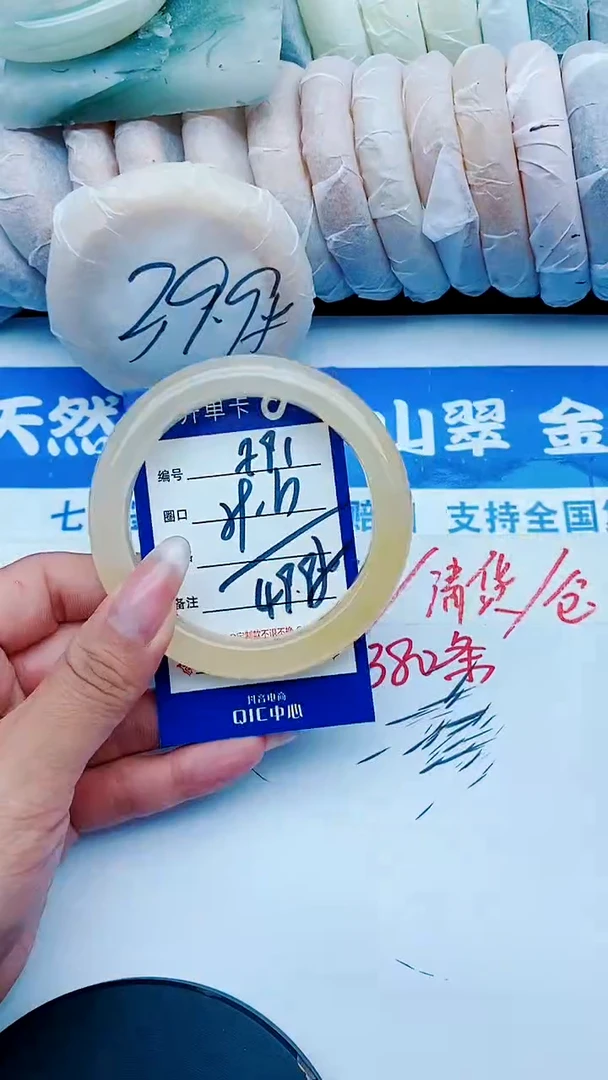 39.9
天然
山翠 金
开单卡
编号 291
圈口
备注 49.8
支持全国
清货/仓
382条
抖音电商
QIC中心